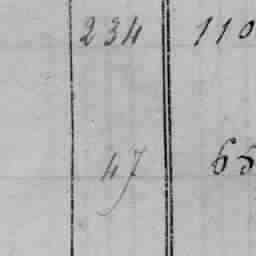 234 110
47 65